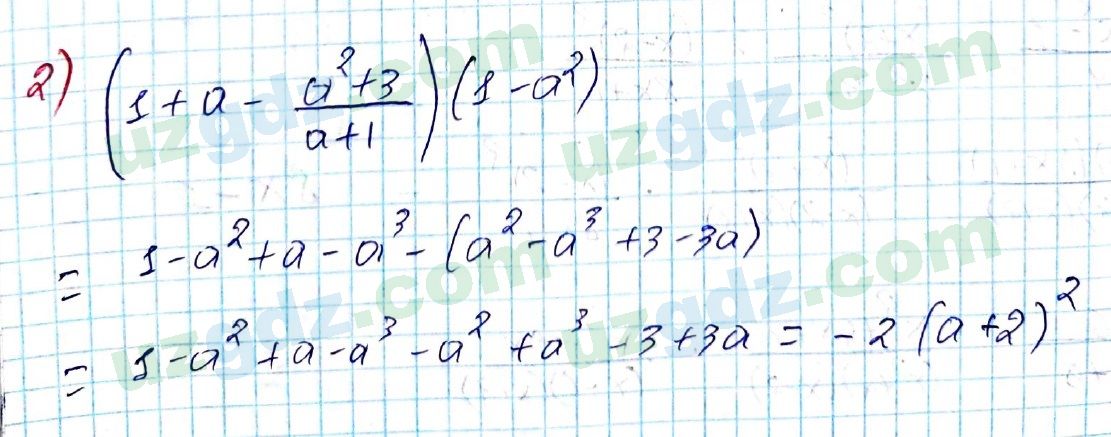 2) (1 + a - \frac{a^2+3}{a+1}) (1 - a^2)
= 1 - a^2 + a - a^3 - (a^2 - a^3 + 3 - 3a)
= 1 - a^2 + a - a^3 - a^2 + a^3 - 3 + 3a = -2 (a + 2)^2
uzgdz.com uzgdz.com
uzgdz.com uzgdz.com